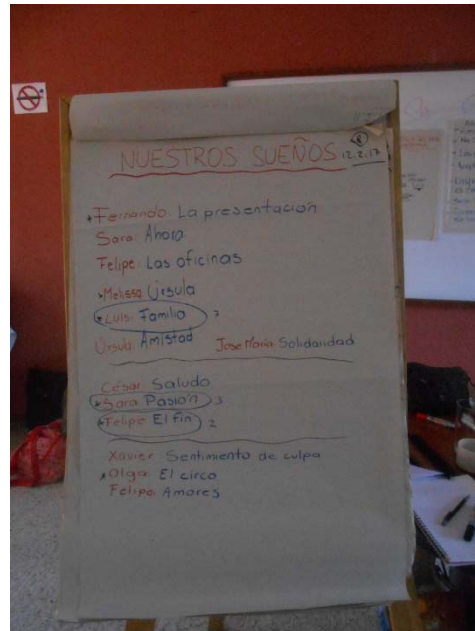 NUESTROS SUEÑOS 12.2.17
Fernando: La presentación
Sara: Ahora
Felipe: Las oficinas
Melissa Úrsula
Luis: Familia 7
Úrsula Amistad José María: Solidaridad
César: Saludo
Sara Pasión 3
Felipe: El fin 2
Xavier: Sentimiento de culpa
Olga: El circo
Felipe: Amores